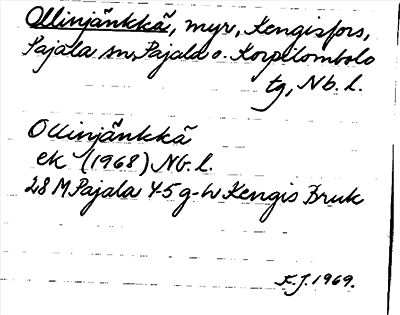 Ollinjänkkä, myr, Kengisfors,
Pajala sn, Pajala o. Korpilombolo
tg, Nb. l.
Ollinjänkkä
ek (1968) Nb. l.
28 M Pajala 4-5 g-h Kengis Bruk
F.J. 1969.